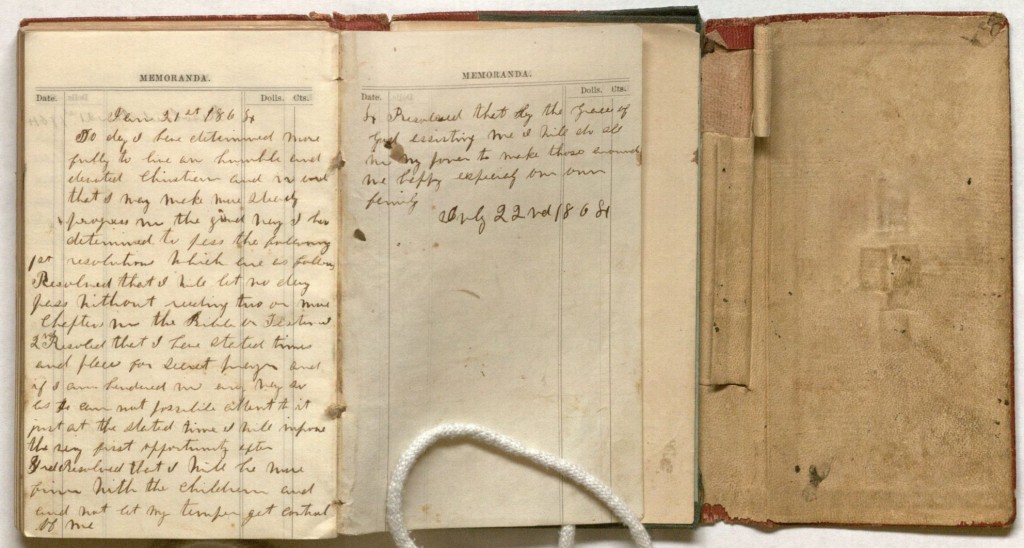 MEMORANDA.
Date. Dolls. Cts.
Jan 21st 1864
To day I have determined more
fully to live an humble and
devoted Christian and in order
that I may make more steady
progress in the good way I have
determined to pass the following
resolutions which are as follow
1st
Resolved that I will let no day
pass without reading two or more
Chapters in the Bible or Testament
2nd Resolved that I have stated times
and place for secret prayer and
if I am hendered in any way so
as I can not possible attent to it
just at the stated time I will improve
the very first opportunity after
3rd Resolved that I will be more
firm with the children and
and not let my temper get control
of me
MEMORANDA.
Date. Dolls. Cts.
4 Resolved that by the Grace of
God assisting me I will do all
in my power to make those around
me happy especially our own
family
July 22nd 1864